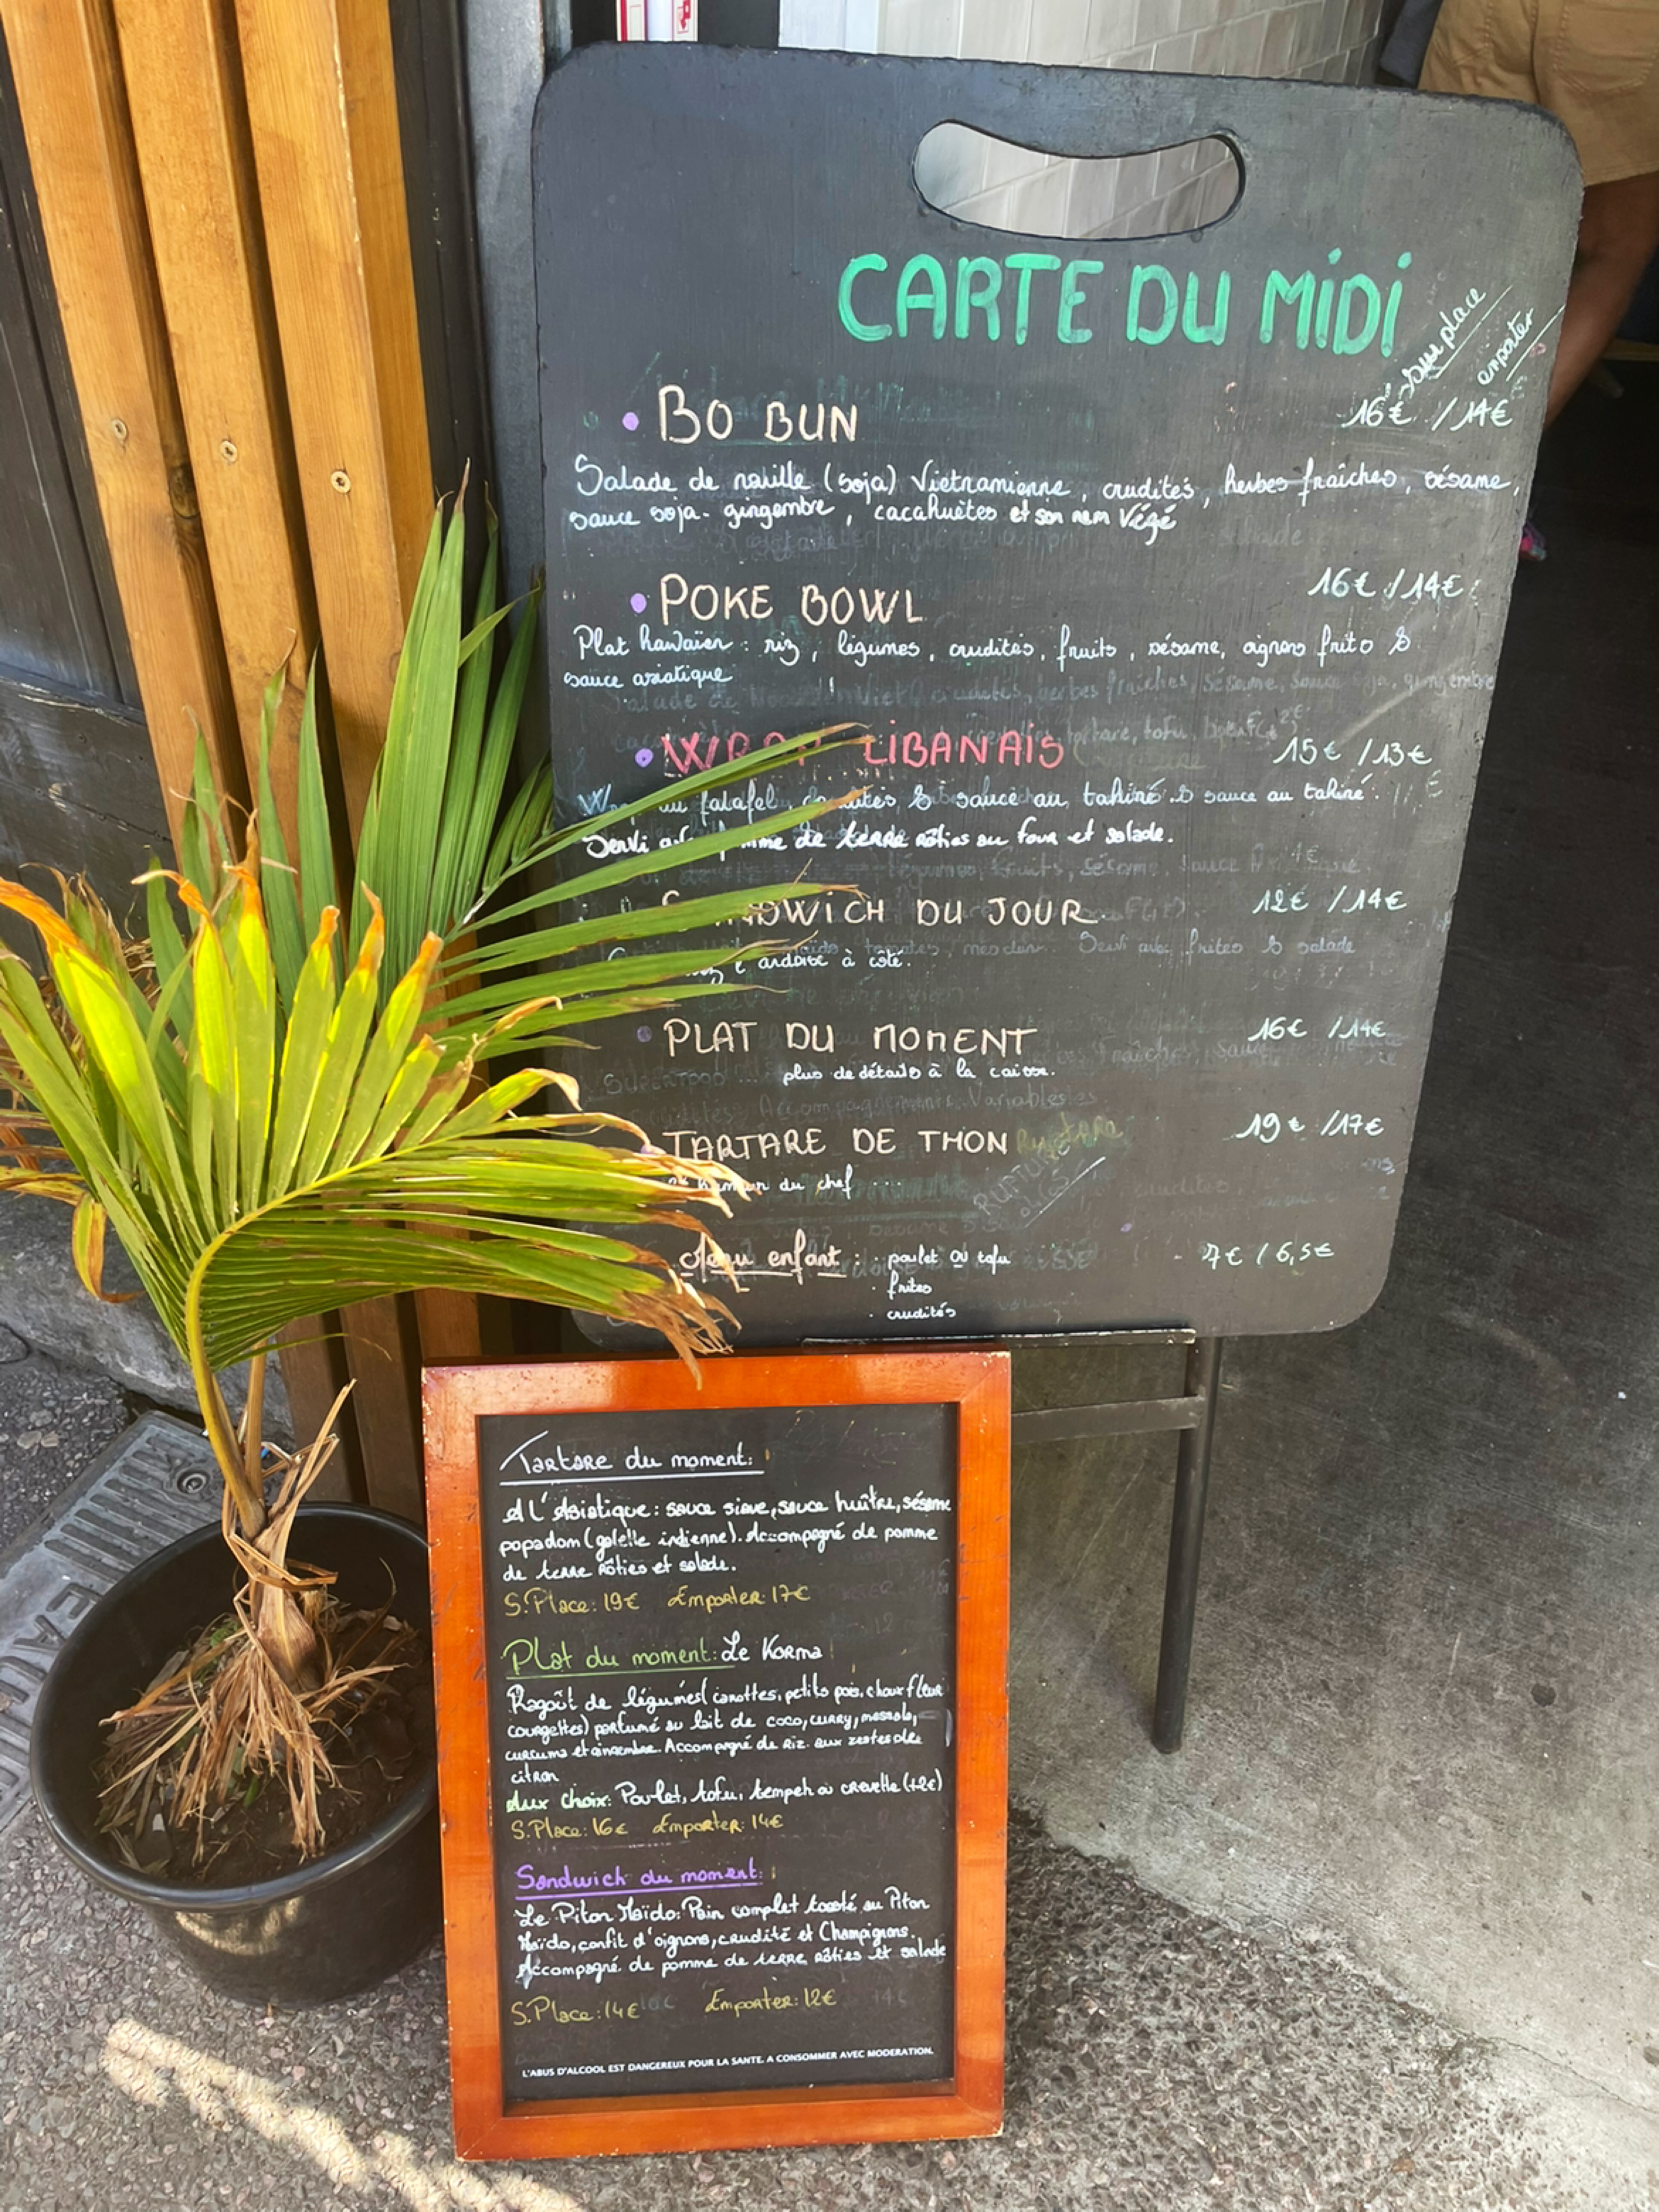 CARTE DU MIDI
sur place
emporter
• BO BUN 16€ / 14€
Salade de nouille (soja) Vietnamienne, crudités, herbes fraîches, sésame,
sauce soja - gingembre, cacahuètes et son nem Végé
• POKE BOWL 16€ / 14€
Plat hawaïen : riz, légumes, crudités, fruits, sésame, oignons frits &
sauce asiatique
• WRAP LIBANAIS 15€ / 13€
au falafel, & sauce au tahiné & sauce au tahiné.
Servi de terre rôties au four et salade.
SANDWICH DU JOUR. 12€ / 14€
ardoise à côté.
• PLAT DU MOMENT 16€ / 14€
plus de détails à la caisse.
TARTARE DE THON 19€ / 17€
du chef ....
RUPTURE
Menu enfant : · poulet ou tofu - 7€ / 6,5€
· frites
· crudités
Tartare du moment:
A l'Asiatique: sauce siave, sauce huître, sésame
popadom (galette indienne). Accompagné de pomme
de terre rôties et salade.
S.Place: 19€ Emporter: 17€
Plat du moment: Le Korma
Ragoût de légumes (carottes, petits pois, choux fleur
courgettes) parfumé au lait de coco, curry, massala,
curcuma et gingembre. Accompagné de riz aux zestes de
citron
Aux choix: Poulet, tofu, tempeh ou crevette (+2€)
S.Place: 16€ Emporter: 14€
Sandwich du moment:
Le Piton Maïdo: Pain complet toasté au Piton
Maïdo, confit d'oignons, crudité et Champignons.
Accompagné de pomme de terre rôties et salade
S.Place: 14€ Emporter: 12€
L'ABUS D'ALCOOL EST DANGEREUX POUR LA SANTE. A CONSOMMER AVEC MODERATION.